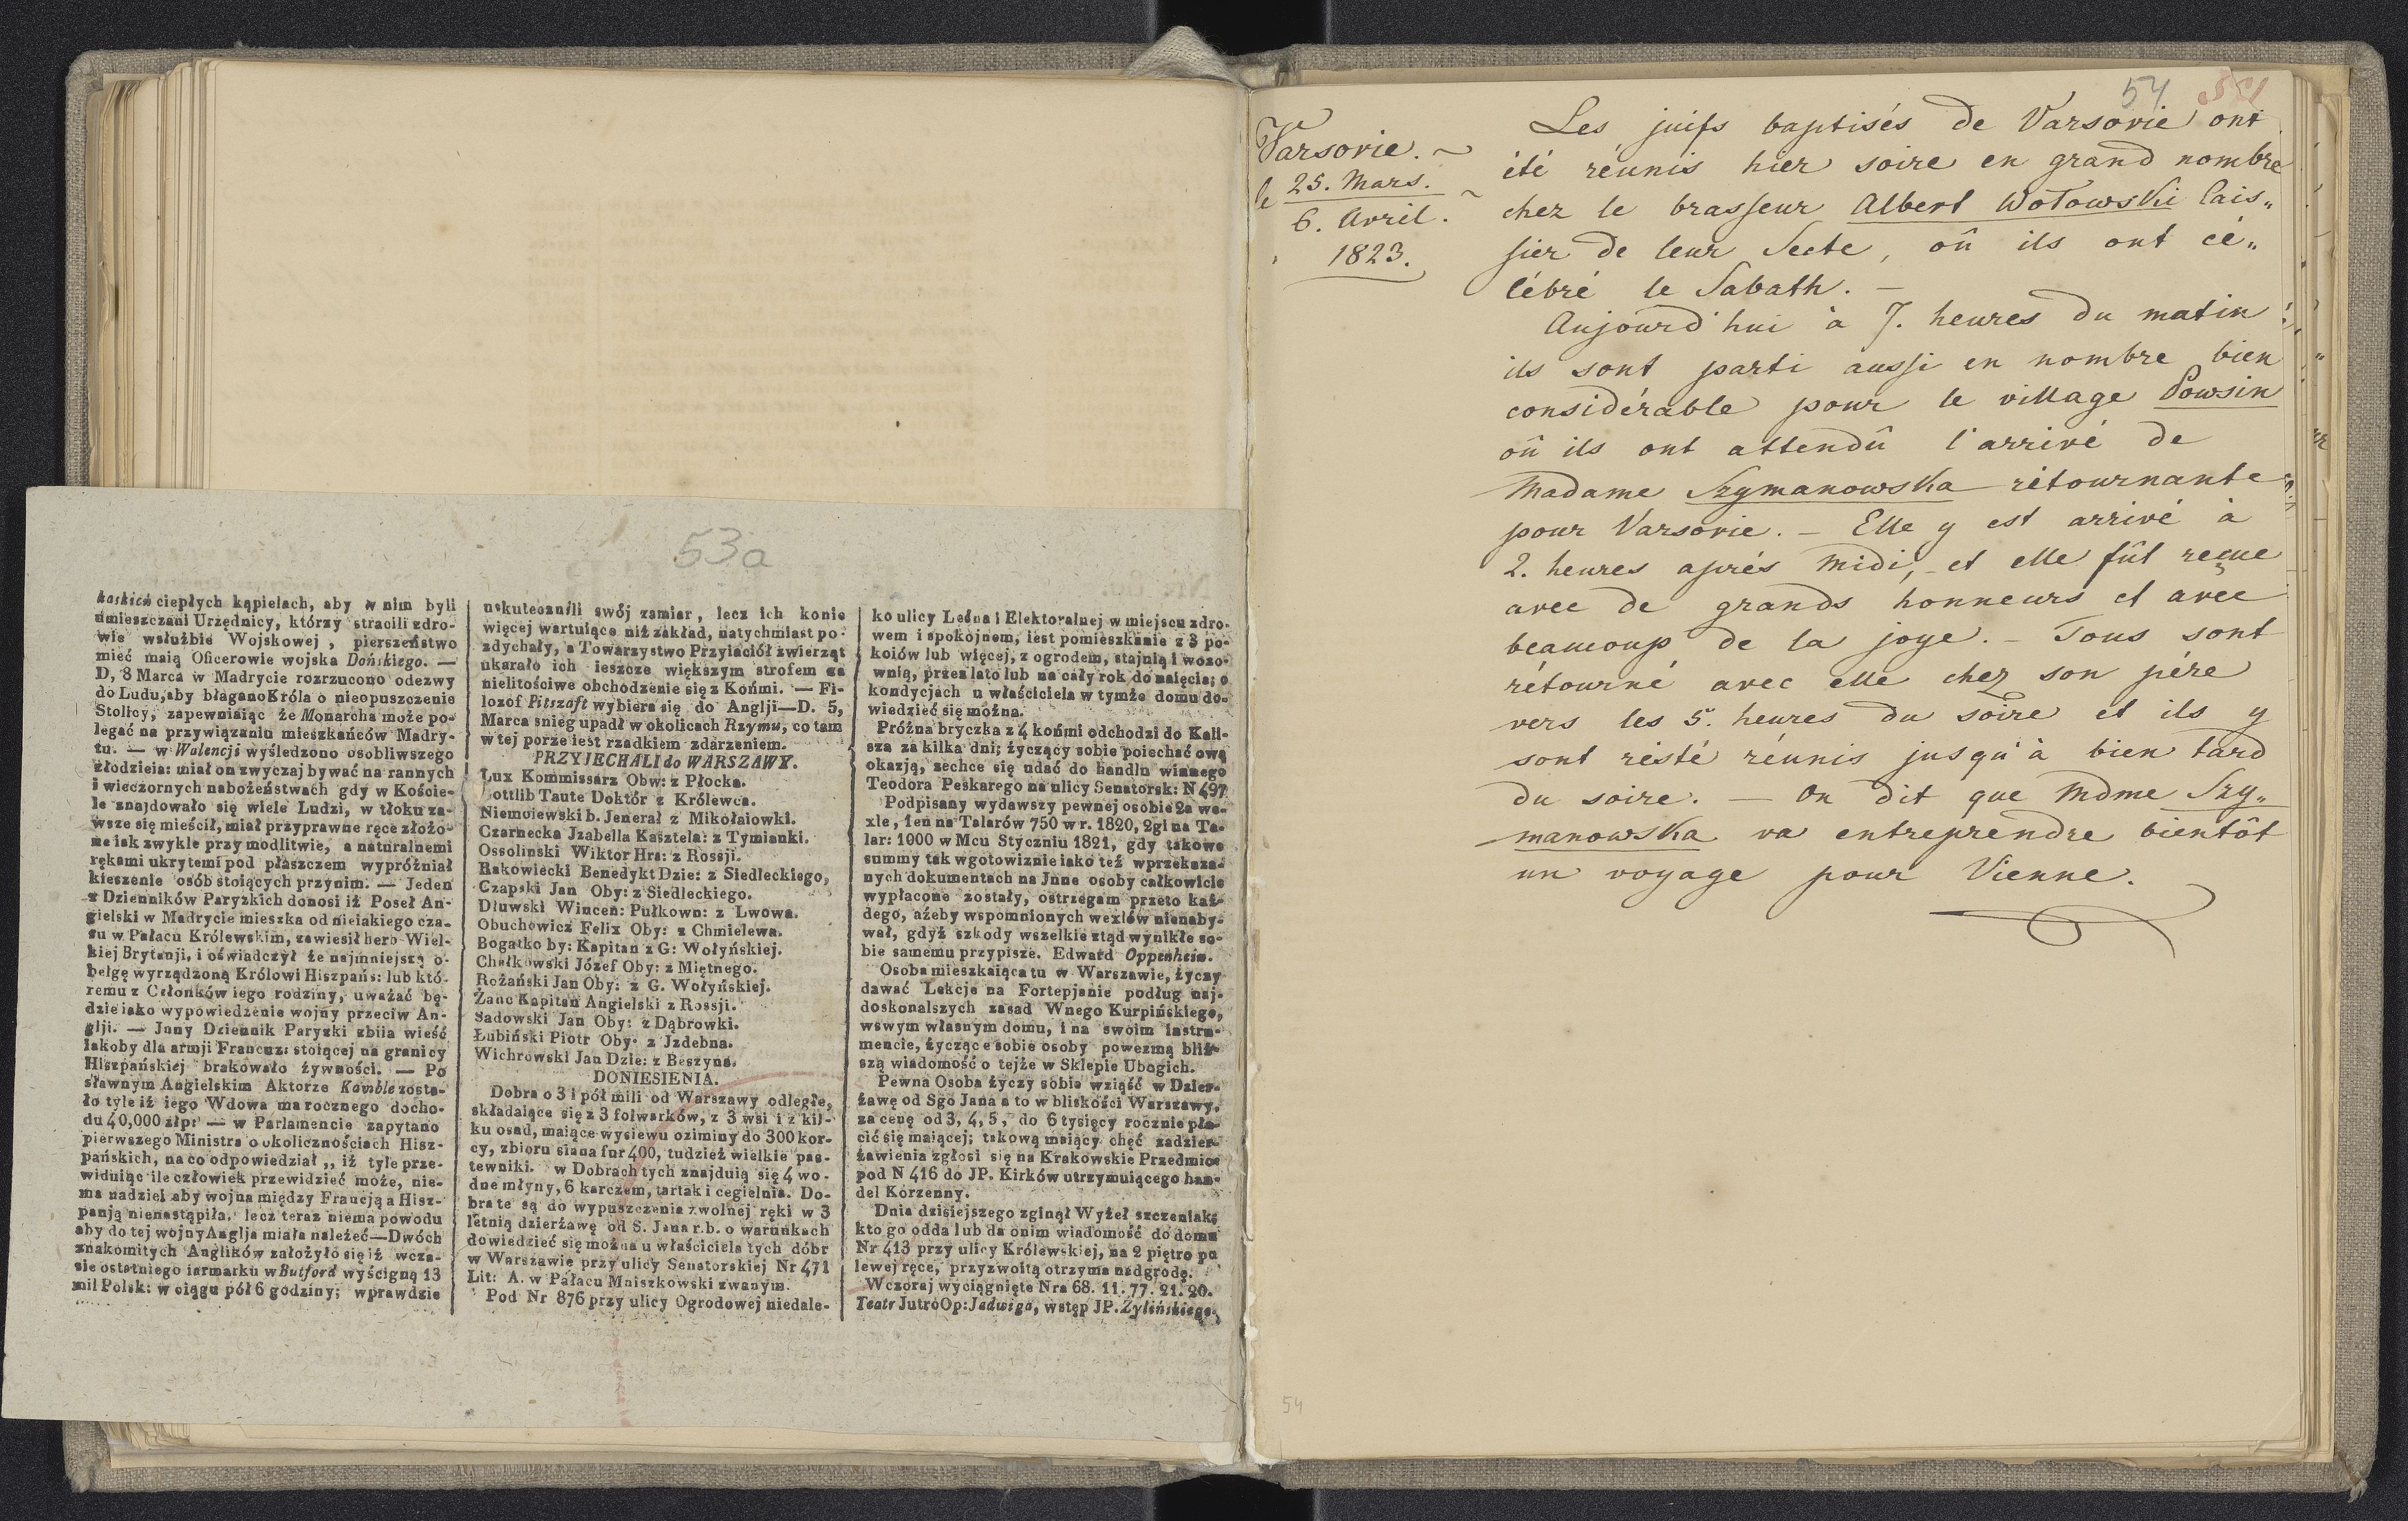 53a
kaskich ciepłych kąpielach, aby w nim byli
umieszczani Urzędnicy, którzy stracili zdro-
wie wsłużbie Wojskowej, pierszeństwo
mieć maią Oficerowie wojska Dońskiego. —
D, 8 Marca w Madrycie rozrzucono odezwy
do Ludu, aby błagano Króla o nieopuszczenie
Stolicy, zapewniaiąc że Monarcha może po-
legać na przywiązaniu mieszkańców Madry-
tu. — w Walencji wyśledzono osobliwszego
złodzieia: miał on zwyczaj bywać na rannych
i wieczornych nabożeństwach gdy w Koście-
le znajdowało się wiele Ludzi, w tłoku za-
wsze się mieścił, miał przyprawne ręce złożo-
ne iak zwykle przy modlitwie, a naturalnemi
rękami ukrytemi pod płaszczem wypróżniał
kieszenie osób stoiących przynim. — Jeden
z Dzienników Paryzkich donosi iż Poseł An-
gielski w Madrycie mieszka od nieiakiego cza-
su w Pałacu Królewskim, zawiesił herb Wiel-
kiej Brytanji, i oświadczył że najmniejszą o-
belgę wyrządzoną Królowi Hiszpańs: lub któ-
remu z Członków iego rodziny, uważać bę-
dzie iako wypowiedzenie wojny przeciw An-
glji. — Jnny Dziennik Paryzki zbiia wieść
iakoby dla armji Francuz: stoiącej na granicy
Hiszpańskiej brakowało żywności. — Po
sławnym Angielskim Aktorze Kamble zosta-
ło tyle iż iego Wdowa ma rocznego docho-
du 40,000 złp: — w Parlamencie zapytano
pierwszego Ministra o okolicznościach Hisz-
pańskich, na co odpowiedział ,, iż tyle prze-
widuiąc ile człowiek przewidzieć może, nie-
ma nadziei aby wojna między Francją a Hisz-
panją nienastąpiła, lecz teraz niema powodu
aby do tej wojny Anglja miała należeć—Dwóch
znakomitych Anglików założyło się iż wcza-
sie ostatniego iarmarku w Butford wyścigną 13
mil Polsk: w ciągu pół 6 godziny; wprawdzie
uskutecznili swój zamiar, lecz ich konie
więcej wartuiące niż zakład, natychmiast po-
zdychały, a Towarzystwo Przyiaciół zwierząt
ukarało ich ieszcze większym strofem za
nielitościwe obchodzenie się z Końmi. — Fi-
lozof Pitszaft wybiera się do Anglji—D. 5,
Marca snieg upadł w okolicach Rzymu, co tam
w tej porze iest rzadkiem zdarzeniem.
PRZYJECHALI do WARSZAWY.
Lux Kommissarz Obw: z Płocka.
Gottlib Taute Doktór z Królewca.
Niemoiewski b. Jenerał z Mikołaiowki.
Czarnecka Jzabella Kasztela: z Tymianki.
Ossolinski Wiktor Hra: z Rossji.
Rakowiecki Benedykt Dzie: z Siedleckiego,
Czapski Jan Oby: z Siedleckiego.
Dłuwski Wincen: Pułkown: z Lwowa.
Obuchowicz Felix Oby: z Chmielewa.
Bogatko by: Kapitan z G: Wołyńskiej.
Chełkowski Józef Oby: z Miętnego.
Rożański Jan Oby: z G. Wołyńskiej.
Żanc Kapitan Angielski z Rossji.
Sadowski Jan Oby: z Dąbrowki.
Łubiński Piotr Oby: z Jzdebna.
Wichrowski Jan Dzie: z Beszyna.
DONIESIENIA.
Dobra o 3 i pół mili od Warszawy odległe,
składaiące się z 3 folwarków, z 3 wsi i z kil-
ku osad, maiące wysiewu oziminy do 300 kor-
cy, zbioru siana fur 400, tudzież wielkie pas-
tewniki. w Dobrach tych znajduią się 4 wo-
dne młyny, 6 karczem, tartak i cegielnia. Do-
bra te są do wypuszczenia zwolnej ręki w 3
letnią dzierżawę od S. Jana r.b. o warunkach
dowiedzieć się można u właściciela tych dóbr
w Warszawie przy ulicy Senatorskiej Nr 471
Lit: A. w Pałacu Mniszkowski zwanym.
Pod Nr 876 przy ulicy Ogrodowej niedale-
ko ulicy Leśna i Elektoralnej w miejscu zdro-
wem i spokojnem, iest pomieszkanie z 3 po-
koiów lub więcej, z ogrodem, stajnią i wozo-
wnią, przez lato lub na cały rok do naięcia; o
kondycjach u właściciela w tymże domu do-
wiedzieć się można.
Próżna bryczka z 4 końmi odchodzi do Kali-
sza za kilka dni; życzący sobie poiechać ową
okazją, zechce się udać do handlu winnego
Teodora Peskarego na ulicy Senatorsk: N 497
Podpisany wydawszy pewnej osobie 2a we-
xle, 1en na Talarów 750 w r. 1820, 2gi na Ta-
lar: 1000 w Mcu Styczniu 1821, gdy takowe
summy tak wgotowiznie iako też wprzekaza-
nych dokumentach na Jnne osoby całkowicie
wypłacone zostały, ostrzegam przeto każ-
dego, ażeby wspomnionych wexlów nienaby-
wał, gdyż szkody wszelkie ztąd wynikłe so-
bie samemu przypisze. Edward Oppenheim.
Osoba mieszkaiąca tu w Warszawie, życzy
dawać Lekcje na Fortepjanie podług naj-
doskonalszych zasad Wnego Kurpińskiego,
wswym własnym domu, i na swoim instru-
mencie, życzące sobie osoby powezmą bliż-
szą wiadomość o tejże w Sklepie Ubogich.
Pewna Osoba życzy sobie wziąść w Dzier-
żawę od Sgo Jana a to w bliskości Warszawy,
za cenę od 3, 4, 5, do 6 tysięcy rocznie pła-
cić się maiącej; takową maiący chęć zadzier-
żawienia zgłosi się na Krakowskie Przedmieś
pod N 416 do JP. Kirków utrzymuiącego han-
del Korzenny.
Dnia dzisiejszego zginął Wyżeł szczeniak;
kto go odda lub da onim wiadomość do domu
Nr 413 przy ulicy Królewskiej, na 2 piętro po
lewej ręce, przyzwoitą otrzyma nadgrodę.
Wczoraj wyciągnięte Nra 68. 11. 77. 21. 20.
Teatr Jutro Op: Jadwiga, wstęp JP. Zylińskiego.
54
Varsovie. ~
le 25. Mars. ~
6. Avril.
1823.
Les juifs baptisés de Varsovie ont
été réunis hier soire en grand nombre
chez le brasseur Albert Wołowski Cais„
sier de leur Secte, où ils ont cé„
lébré le Sabath. —
Aujourd'hui à 7. heures du matin
ils sont parti aussi en nombre bien
considérable pour le village Powsin
oû ils ont attendû l'arrivé de
Madame Szymanowska rétournante
pour Varsovie. — Elle y est arrivé à
2. heures aprés midi, et elle fût reçue
avec de grands honneurs et avec
beaucoup de la joye. — Tous sont
rétourné avec elle chez son pére
vers les 5. heures du soire et ils y
sont résté réunis jusqu'à bien tard
du soire. — On dit que Mdme Szy„
manowska va entreprendre bientôt
un voyage pour Vienne.
54